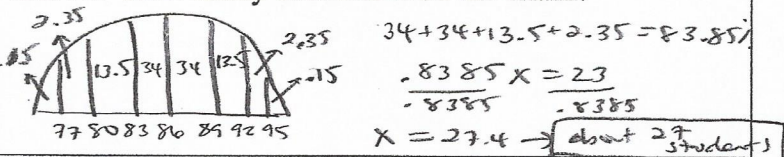 2.35
.15 13.5 34 34 13.5 2.35
.15
77 80 83 86 89 92 95
34+34+13.5+2.35=83.85%
.8385x = 23
.8385 .8385
x = 27.4 → about 27 students